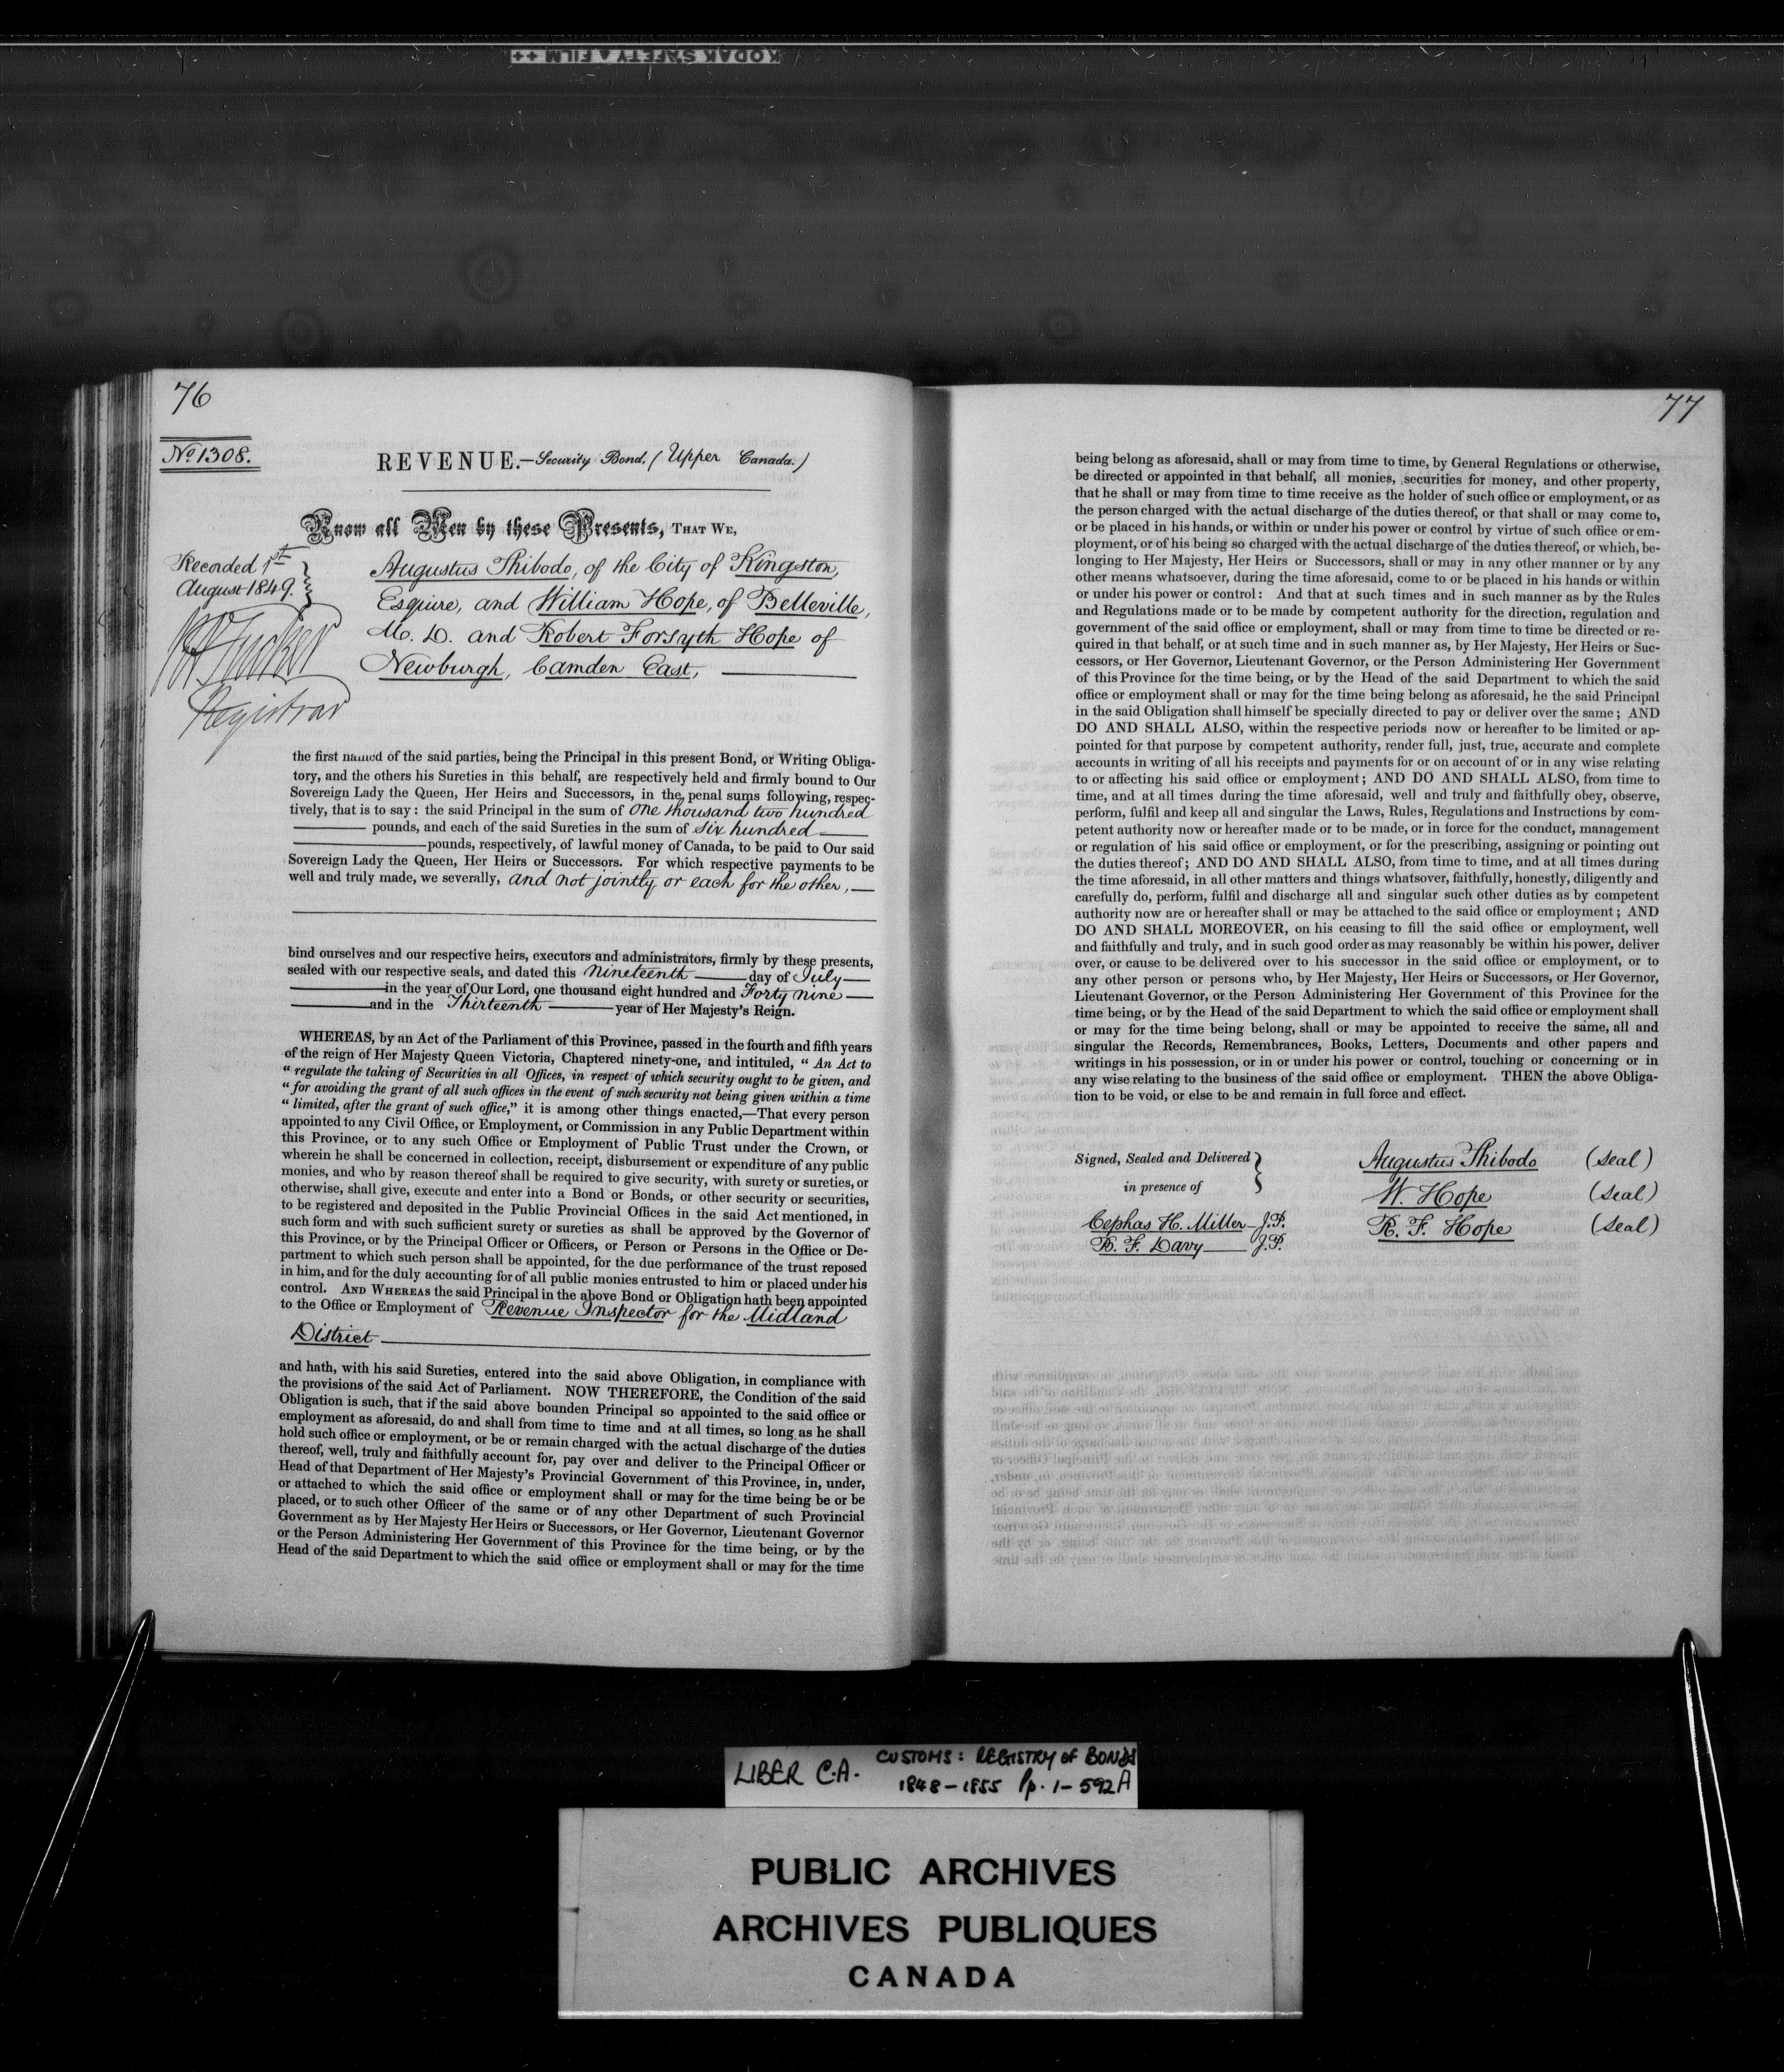 KODAK SAFETY FILM ++
76
No. 1308.
REVENUE.—Security Bond, (Upper Canada.)
Know all Men by these Presents, THAT WE,
Recorded 1st
August 1849.
Augustus Thibodo, of the City of Kingston,
Esquire, and William Hope, of Belleville,
M. D. and Robert Forsyth Hope of
Newburgh, Camden East,
Tucker
Registrar
the first named of the said parties, being the Principal in this present Bond, or Writing Obliga-
tory, and the others his Sureties in this behalf, are respectively held and firmly bound to Our
Sovereign Lady the Queen, Her Heirs and Successors, in the penal sums following, respec-
tively, that is to say: the said Principal in the sum of One thousand two hundred
pounds, and each of the said Sureties in the sum of six hundred
pounds, respectively, of lawful money of Canada, to be paid to Our said
Sovereign Lady the Queen, Her Heirs or Successors. For which respective payments to be
well and truly made, we severally, and not jointly or each for the other,
bind ourselves and our respective heirs, executors and administrators, firmly by these presents,
sealed with our respective seals, and dated this nineteenth day of July
in the year of Our Lord, one thousand eight hundred and Forty nine
and in the Thirteenth year of Her Majesty's Reign.
WHEREAS, by an Act of the Parliament of this Province, passed in the fourth and fifth years
of the reign of Her Majesty Queen Victoria, Chaptered ninety-one, and intituled, " An Act to
" regulate the taking of Securities in all Offices, in respect of which security ought to be given, and
" for avoiding the grant of all such offices in the event of such security not being given within a time
" limited, after the grant of such office," it is among other things enacted,—That every person
appointed to any Civil Office, or Employment, or Commission in any Public Department within
this Province, or to any such Office or Employment of Public Trust under the Crown, or
wherein he shall be concerned in collection, receipt, disbursement or expenditure of any public
monies, and who by reason thereof shall be required to give security, with surety or sureties, or
otherwise, shall give, execute and enter into a Bond or Bonds, or other security or securities,
to be registered and deposited in the Public Provincial Offices in the said Act mentioned, in
such form and with such sufficient surety or sureties as shall be approved by the Governor of
this Province, or by the Principal Officer or Officers, or Person or Persons in the Office or De-
partment to which such person shall be appointed, for the due performance of the trust reposed
in him, and for the duly accounting for of all public monies entrusted to him or placed under his
control. AND WHEREAS the said Principal in the above Bond or Obligation hath been appointed
to the Office or Employment of Revenue Inspector for the Midland
District
and hath, with his said Sureties, entered into the said above Obligation, in compliance with
the provisions of the said Act of Parliament. NOW THEREFORE, the Condition of the said
Obligation is such, that if the said above bounden Principal so appointed to the said office or
employment as aforesaid, do and shall from time to time and at all times, so long as he shall
hold such office or employment, or be or remain charged with the actual discharge of the duties
thereof, well, truly and faithfully account for, pay over and deliver to the Principal Officer or
Head of that Department of Her Majesty's Provincial Government of this Province, in, under,
or attached to which the said office or employment shall or may for the time being be or be
placed, or to such other Officer of the same or of any other Department of such Provincial
Government as by Her Majesty Her Heirs or Successors, or Her Governor, Lieutenant Governor
or the Person Administering Her Government of this Province for the time being, or by the
Head of the said Department to which the said office or employment shall or may for the time
77
being belong as aforesaid, shall or may from time to time, by General Regulations or otherwise,
be directed or appointed in that behalf, all monies, securities for money, and other property,
that he shall or may from time to time receive as the holder of such office or employment, or as
the person charged with the actual discharge of the duties thereof, or that shall or may come to,
or be placed in his hands, or within or under his power or control by virtue of such office or em-
ployment, or of his being so charged with the actual discharge of the duties thereof, or which, be-
longing to Her Majesty, Her Heirs or Successors, shall or may in any other manner or by any
other means whatsoever, during the time aforesaid, come to or be placed in his hands or within
or under his power or control: And that at such times and in such manner as by the Rules
and Regulations made or to be made by competent authority for the direction, regulation and
government of the said office or employment, shall or may from time to time be directed or re-
quired in that behalf, or at such time and in such manner as, by Her Majesty, Her Heirs or Suc-
cessors, or Her Governor, Lieutenant Governor, or the Person Administering Her Government
of this Province for the time being, or by the Head of the said Department to which the said
office or employment shall or may for the time being belong as aforesaid, he the said Principal
in the said Obligation shall himself be specially directed to pay or deliver over the same; AND
DO AND SHALL ALSO, within the respective periods now or hereafter to be limited or ap-
pointed for that purpose by competent authority, render full, just, true, accurate and complete
accounts in writing of all his receipts and payments for or on account of or in any wise relating
to or affecting his said office or employment; AND DO AND SHALL ALSO, from time to
time, and at all times during the time aforesaid, well and truly and faithfully obey, observe,
perform, fulfil and keep all and singular the Laws, Rules, Regulations and Instructions by com-
petent authority now or hereafter made or to be made, or in force for the conduct, management
or regulation of his said office or employment, or for the prescribing, assigning or pointing out
the duties thereof; AND DO AND SHALL ALSO, from time to time, and at all times during
the time aforesaid, in all other matters and things whatsoever, faithfully, honestly, diligently and
carefully do, perform, fulfil and discharge all and singular such other duties as by competent
authority now are or hereafter shall or may be attached to the said office or employment; AND
DO AND SHALL MOREOVER, on his ceasing to fill the said office or employment, well
and faithfully and truly, and in such good order as may reasonably be within his power, deliver
over, or cause to be delivered over to his successor in the said office or employment, or to
any other person or persons who, by Her Majesty, Her Heirs or Successors, or Her Governor,
Lieutenant Governor, or the Person Administering Her Government of this Province for the
time being, or by the Head of the said Department to which the said office or employment shall
or may for the time being belong, shall or may be appointed to receive the same, all and
singular the Records, Remembrances, Books, Letters, Documents and other papers and
writings in his possession, or in or under his power or control, touching or concerning or in
any wise relating to the business of the said office or employment. THEN the above Obliga-
tion to be void, or else to be and remain in full force and effect.
Signed, Sealed and Delivered
in presence of
Cephas H. Miller J.P.
B. F. Davy J.P.
Augustus Thibodo (seal)
W. Hope (seal)
R. F. Hope (seal)
LIBER C.A. CUSTOMS: REGISTRY OF BONDS
1848-1855 Pp. 1-592A
PUBLIC ARCHIVES
ARCHIVES PUBLIQUES
CANADA